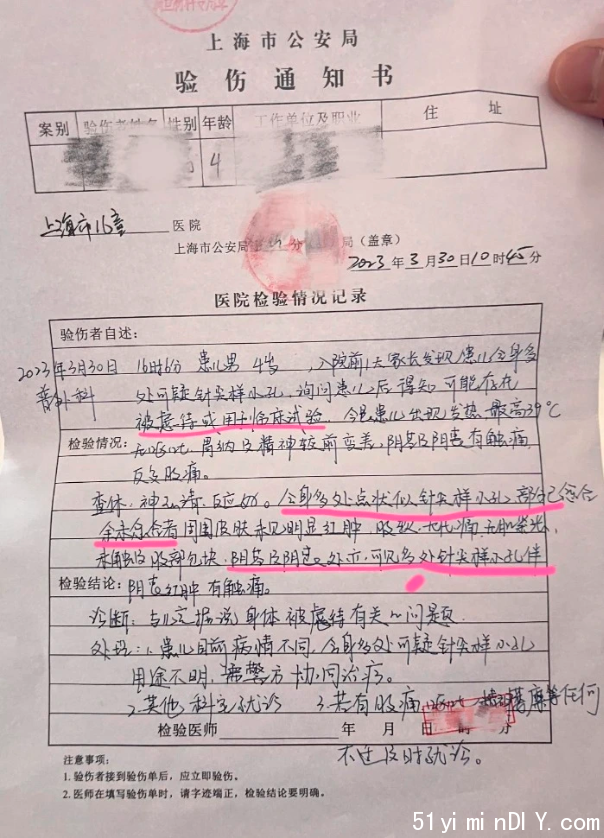 上海市公安局
验伤通知书
案别 验伤者姓名 性别 年龄 工作单位及职业 住 址
4
上海市儿童 医院
上海市公安局 分 局(盖章)
2023年3月30日10时45分
医院检验情况记录
验伤者自述:
2023年3月30日 16时6分 患儿男 4岁,入院前1天家长发现患儿全身多
普外科 处可疑针尖样小孔,询问患儿后得知可能存在
被虐待或用于临床试验。今患儿出现发热 最高39℃
检验情况: 无呕吐,胃纳及精神较前变差,阴茎及阴囊有触痛,
反复腹痛。
查体:神志清,反应好。全身多处点状似针尖样小孔,部分已愈合
余未愈合者周围皮肤未见明显红肿,腹软,无压痛,无肌紧张,
未触及腹部包块,阴茎及阴囊处亦可见多处针尖样小孔伴
检验结论: 阴茎红肿 有触痛。
诊断:与 据说身体被虐待有关的问题
处理:1.患儿目前病情不同,全身多处可疑针尖样小孔
用途不明,需警方协同治疗。
2.其他科室就诊 3.若有腹痛 等任何
检验医师 年 月 日 时 分
不适及时就诊。
注意事项:
1.验伤者接到验伤单后,应立即验伤。
2.医师在填写验伤单时,请字迹端正,检验结论要明确。
51yiminDIY.com